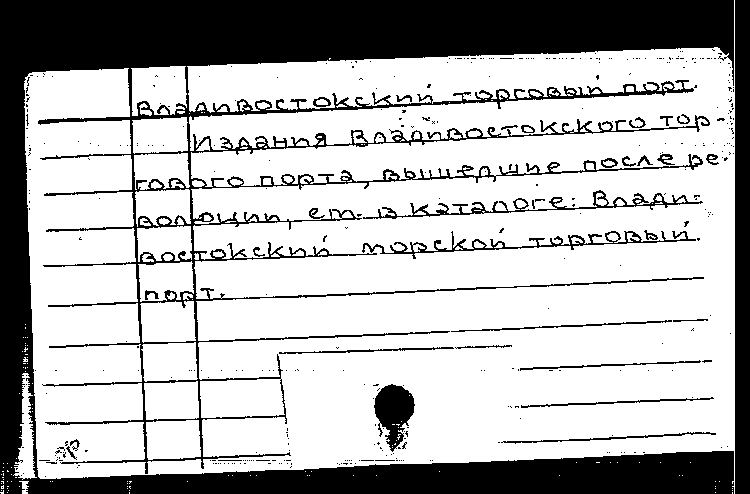 Владивостокский торговый порт.
Издания Владивостокского тор-
гового порта, вышедшие после ре-
волюции, см. в каталоге: Влади-
востокский морской торговый
порт.